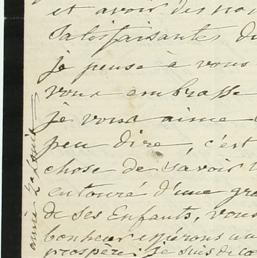 et avoir des nou
satisfaisantes du
je pense à vous
vous embrasse
je vous aime
peu dire, c'est
chose de savoir
entouré d'une gra
de ses Enfants, vous
bonheur espérons un
prospère. je suis de co